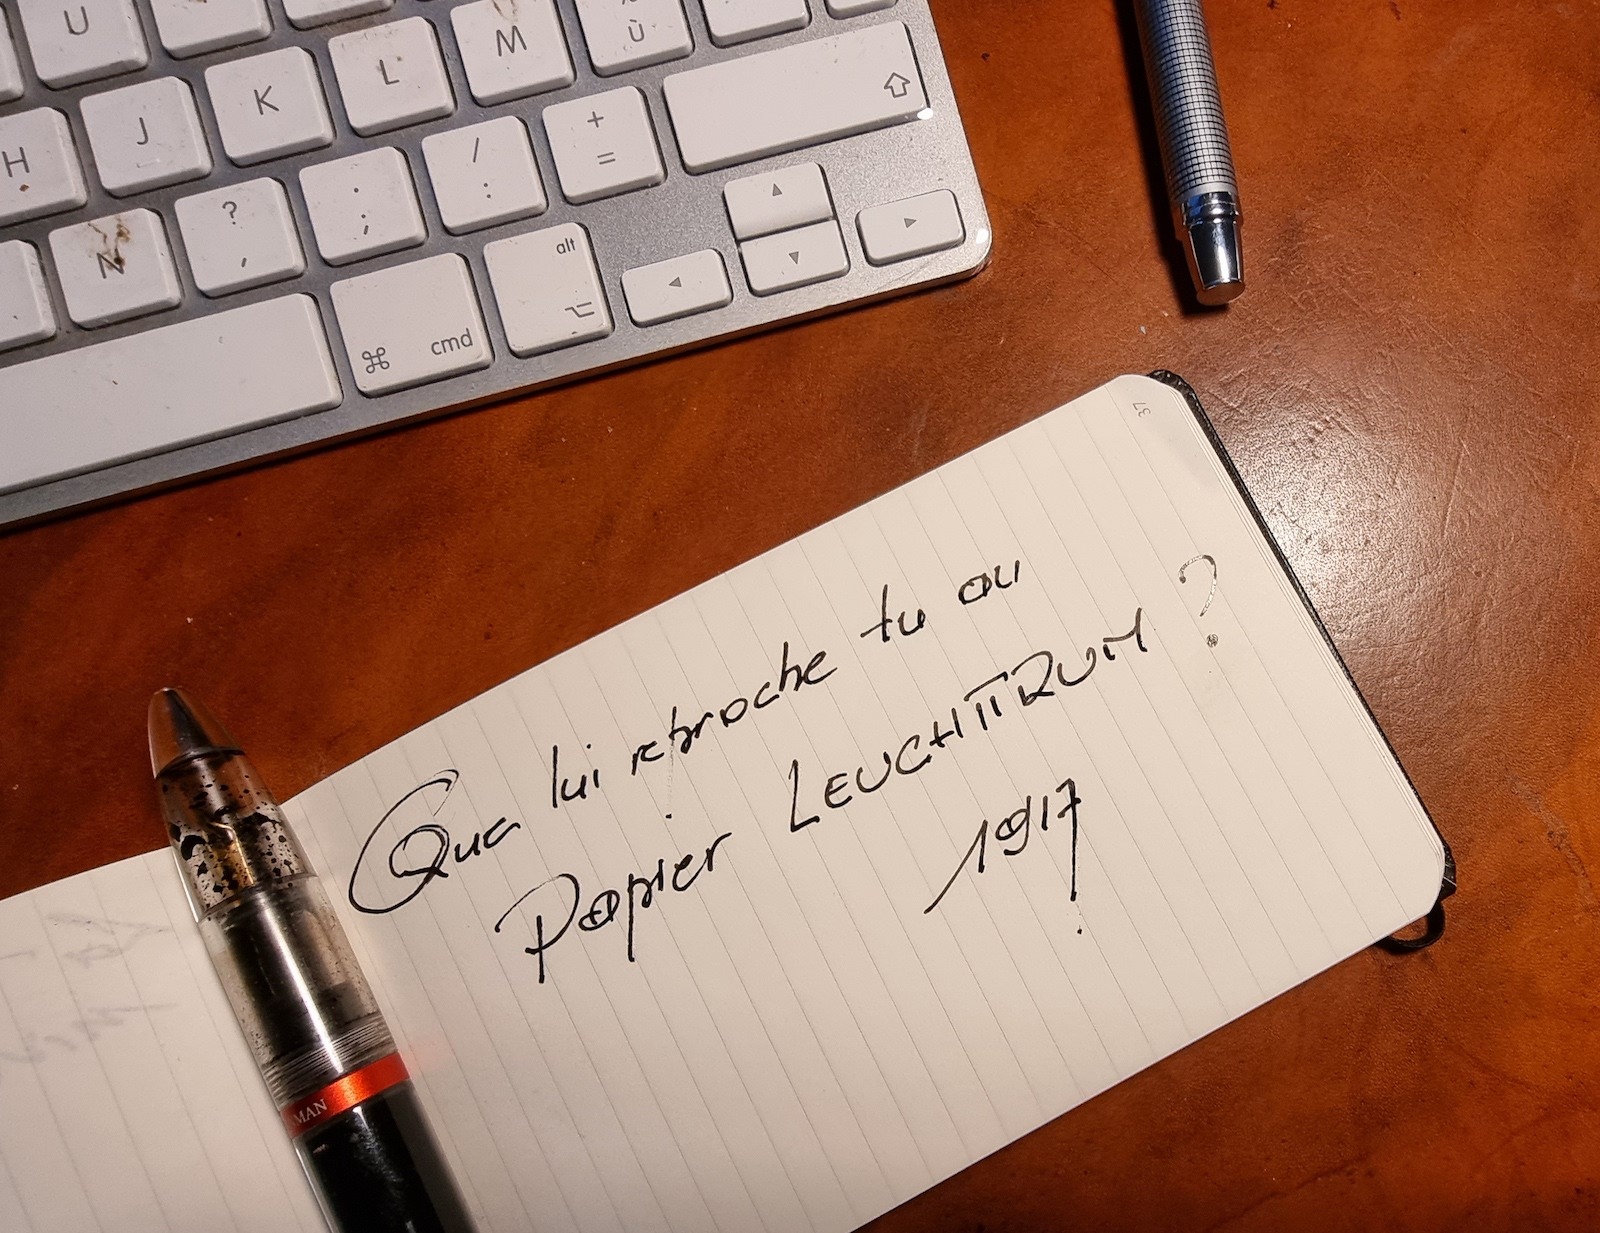 U
M
ù
H
J
K
L
/
:
+
=
N
?
,
.
;
alt
cmd
37
Que lui reproche tu au
Papier LEUCHTTRUM ?
1917
MAN